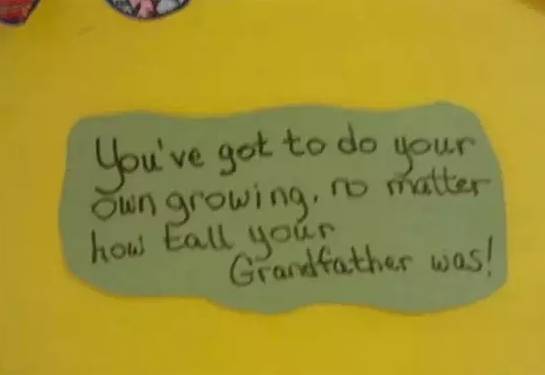 You've got to do your
own growing, no matter
how tall your
Grandfather was!